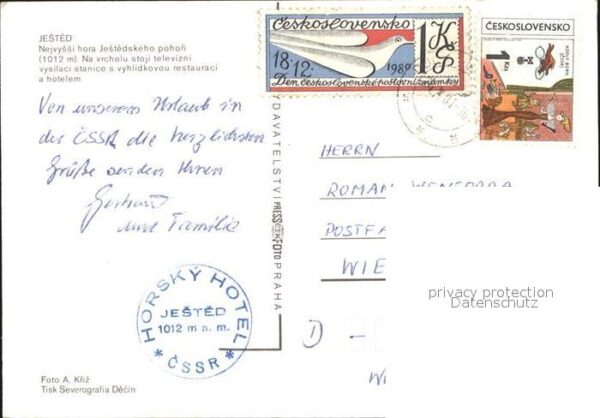 JEŠTĚD
Nejvyšší hora Ještědského pohoří
(1012 m). Na vrcholu stojí televizní
vysílací stanice s vyhlídkovou restaurací
a hotelem
Československo
1 Kčs
18.12. 1980
Den československé poštovní známky
ČESKOSLOVENSKO
1 Kčs
Von unserem Urlaub in
der ČSSR die herzlichsten
Grüße senden Ihnen
Gerhard
und Familie
VYDAVATELSTVÍ PRESSFOTO PRAHA
HERRN
ROMAN
POSTFA
WIE
D -
privacy protection
Datenschutz
HORSKÝ HOTEL
JEŠTĚD
1012 m n. m.
* ČSSR *
Foto A. Kříž
Tisk Severografia Děčín